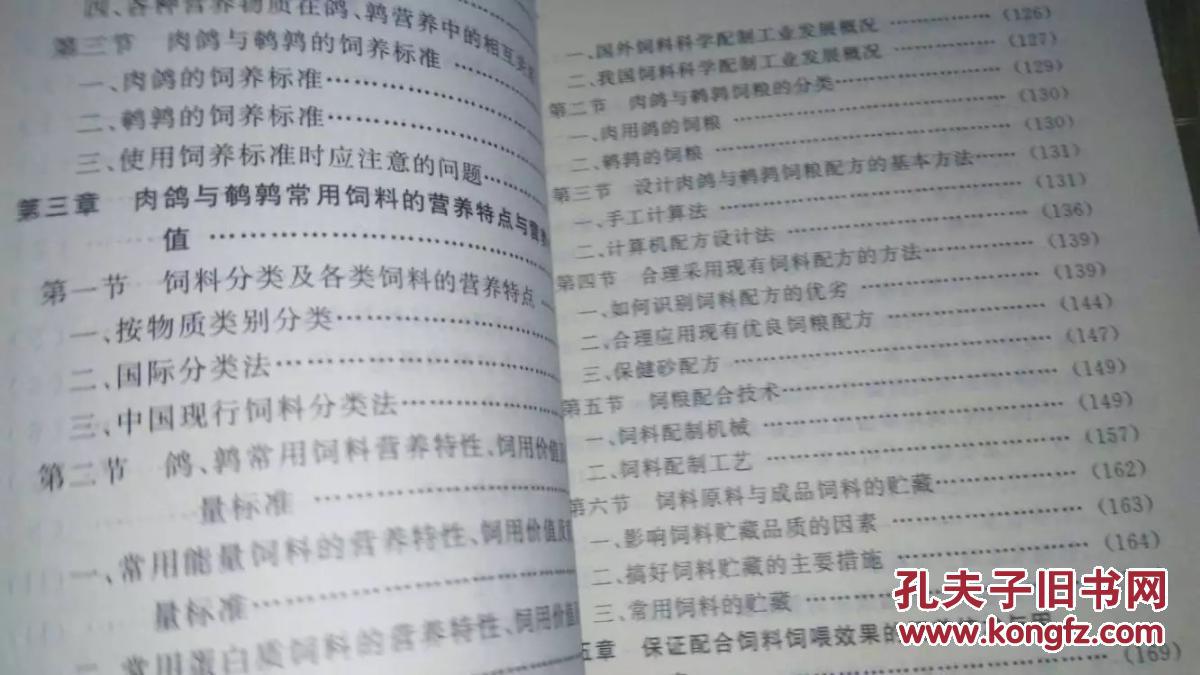 四、各种营养物质在鸽、鹑营养中的相互关
第三节 肉鸽与鹌鹑的饲养标准
一、肉鸽的饲养标准
二、鹌鹑的饲养标准
三、使用饲养标准时应注意的问题
第三章 肉鸽与鹌鹑常用饲料的营养特点与营养
值
第一节 饲料分类及各类饲料的营养特点
一、按物质类别分类
二、国际分类法
三、中国现行饲料分类法
第二节 鸽、鹑常用饲料营养特性、饲用价值及
量标准
一、常用能量饲料的营养特性、饲用价值及
量标准
二、常用蛋白质饲料的营养特性、饲用价值
(126)
一、国外饲料科学配制工业发展概况
二、我国饲料科学配制工业发展概况 (127)
第二节 肉鸽与鹌鹑饲粮的分类 (129)
一、肉用鸽的饲粮 (130)
二、鹌鹑的饲粮 (130)
第三节 设计肉鸽与鹌鹑饲粮配方的基本方法 (131)
一、手工计算法 (131)
二、计算机配方设计法 (136)
第四节 合理采用现有饲料配方的方法 (139)
一、如何识别饲料配方的优劣 (139)
二、合理应用现有优良饲粮配方 (144)
三、保健砂配方 (147)
第五节 饲粮配合技术 (149)
一、饲料配制机械 (149)
二、饲料配制工艺 (157)
第六节 饲料原料与成品饲料的贮藏 (162)
一、影响饲料贮藏品质的因素 (163)
二、搞好饲料贮藏的主要措施 (164)
三、常用饲料的贮藏
五章 保证配合饲料饲喂效果的
(169)
孔夫子旧书网
www.kongfz.com